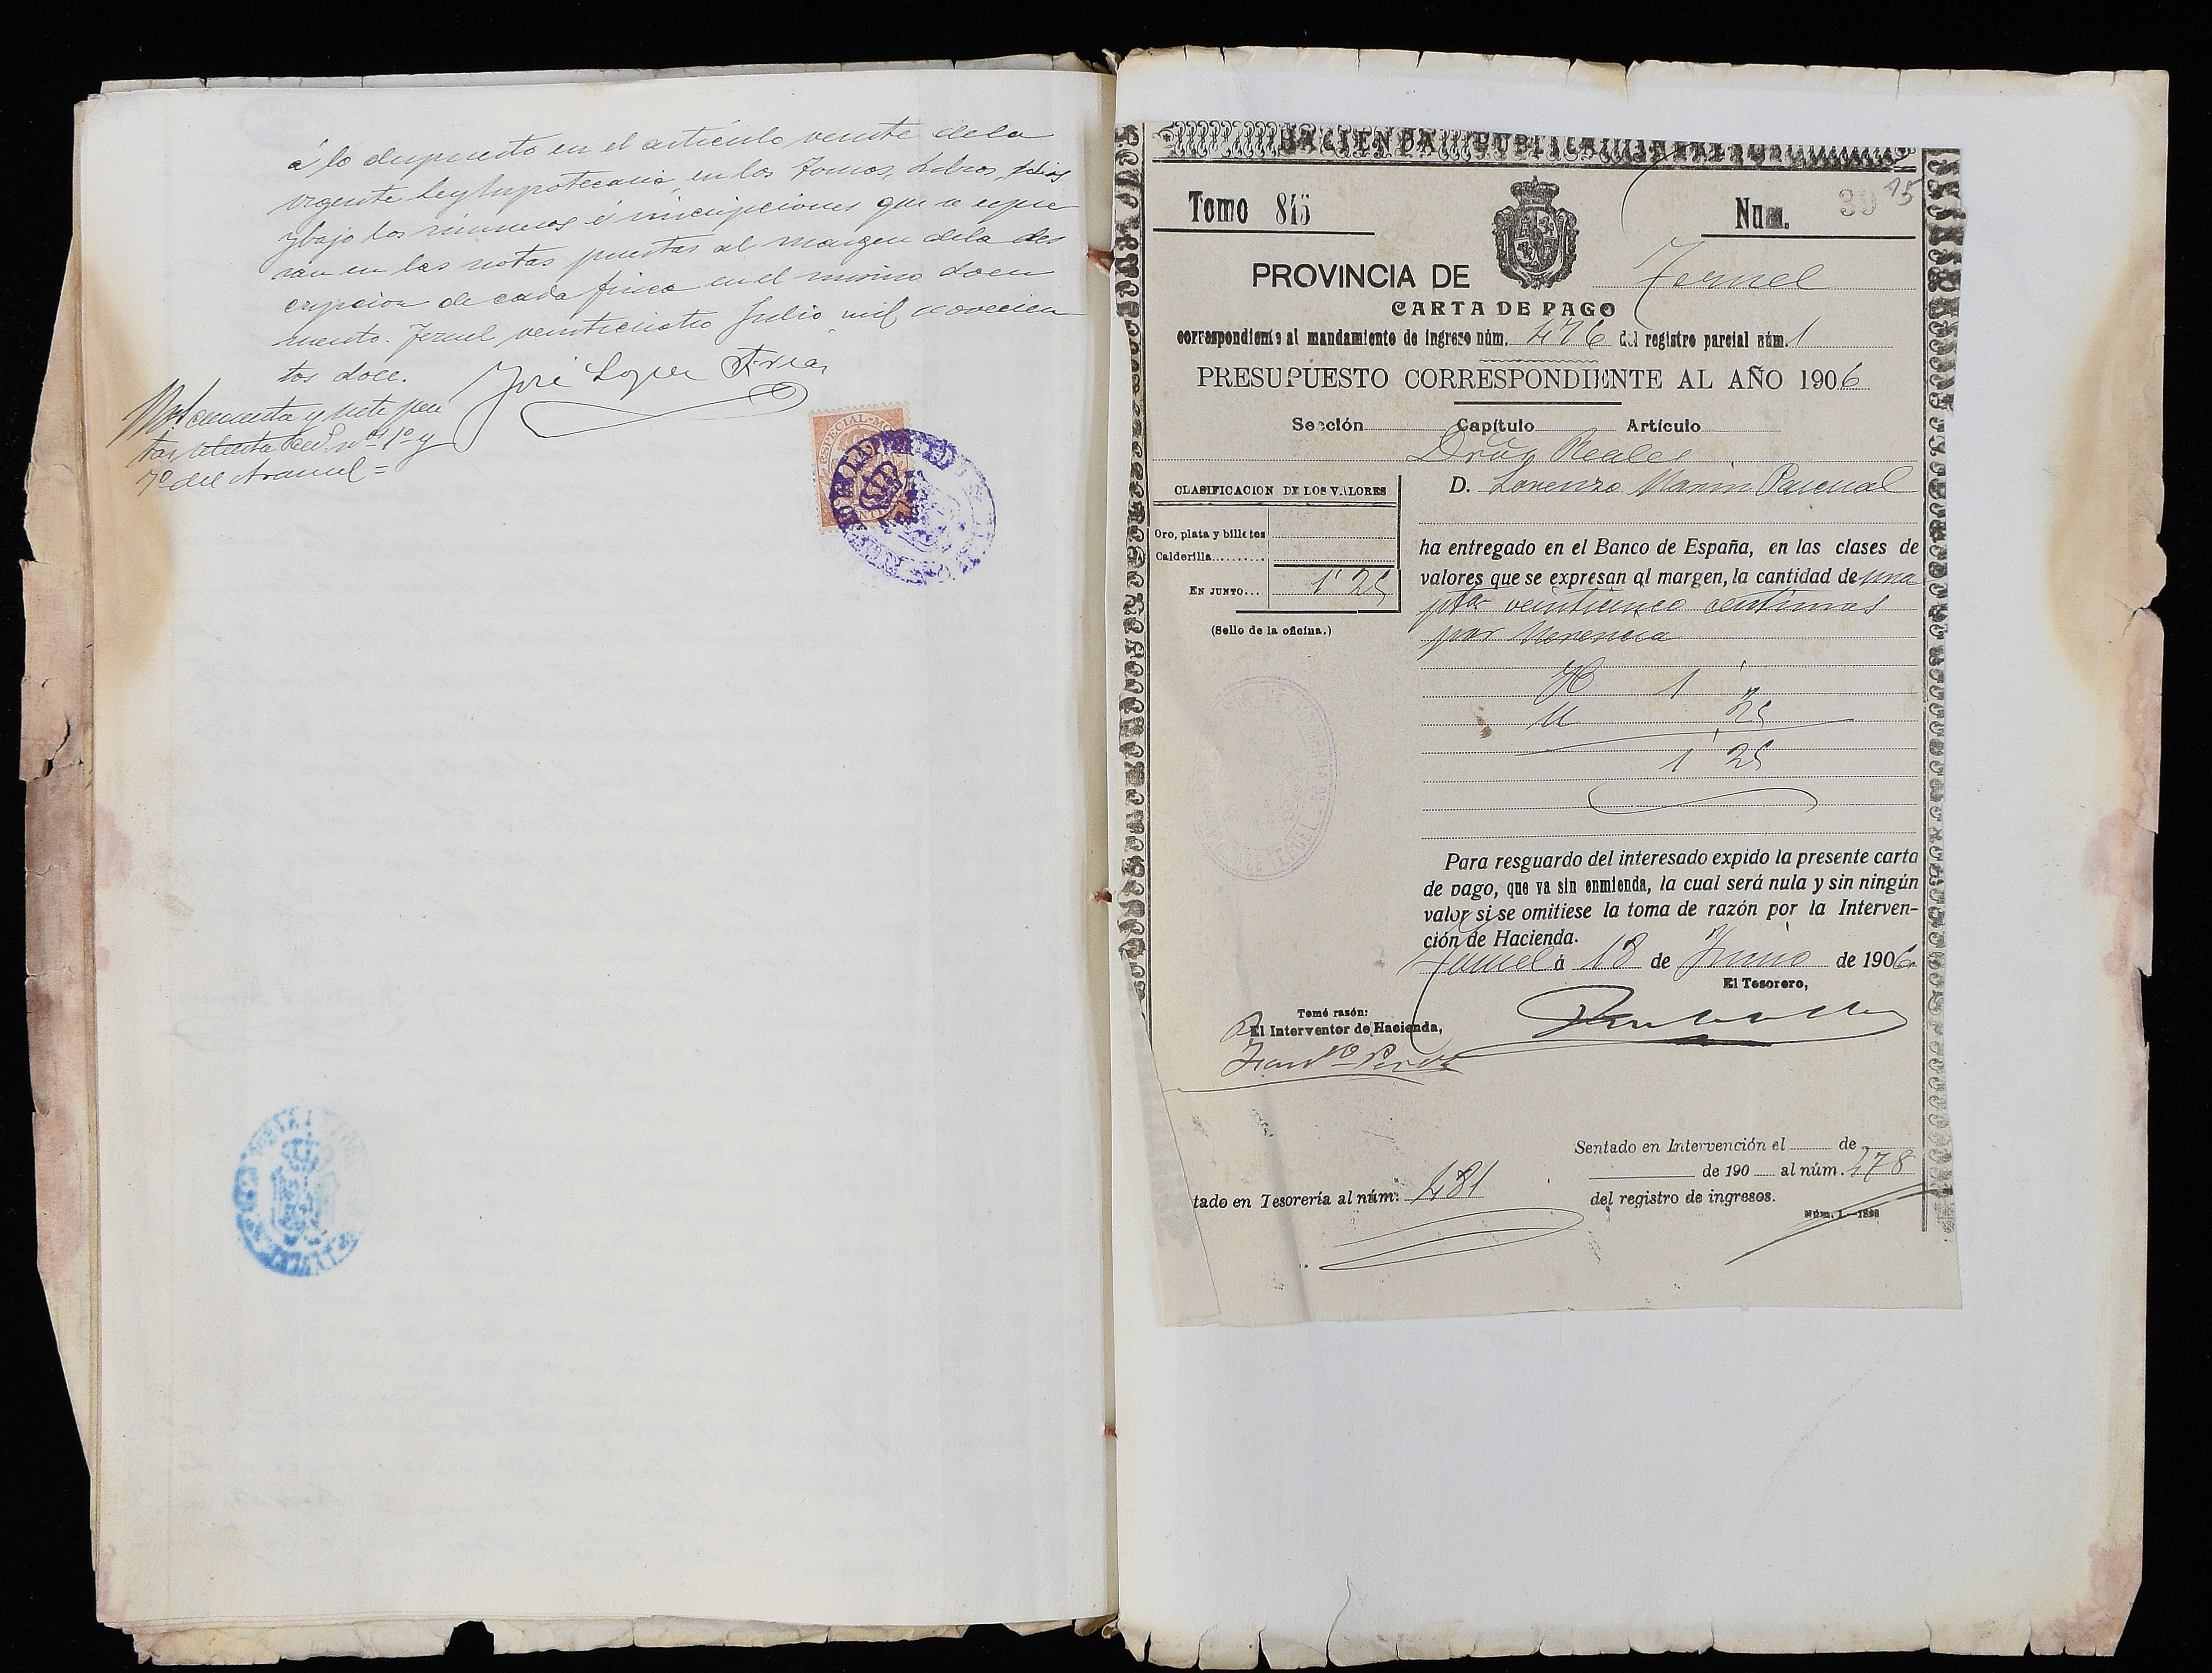 á lo dispuesto en el artículo veinte dela
vigente ley hipotecaria, en los Tomos, Libros, folios
y bajo los números é inscripciones que se expre
san en las notas puestas al margen dela des
cripcion de cada finca en el mismo docu
mento. Teruel veinticuatro Julio mil novecien
tos doce. José Lopez
cincuenta y siete pese
tas nos 1º y
7º del Arancel =
ESPECIAL-MO
HACIENDA PUBLICA
Tomo 815
Num. 30 75
PROVINCIA DE Teruel
CARTA DE PAGO
correspondiente al mandamiento de ingreso núm. 476 del registro parcial núm. 1
PRESUPUESTO CORRESPONDIENTE AL AÑO 1906
Sección Capítulo Artículo
Dros Reales
CLASIFICACION DE LOS VALORES
Oro, plata y billetes
Calderilla
EN JUNTO... 1'25
(Sello de la oficina.)
D. Lorenzo Marin Pascual
ha entregado en el Banco de España, en las clases de
valores que se expresan al margen, la cantidad de una
pta veinticinco centimos
por Herencia
H 1'
25
1'25
Para resguardo del interesado expido la presente carta
de pago, que va sin enmienda, la cual será nula y sin ningún
valor si se omitiese la toma de razón por la Interven-
ción de Hacienda.
Teruel á 18 de Junio de 1906
El Tesorero,
Tomé razón:
El Interventor de Hacienda,
Sentado en Intervención el de
de 190 al núm. 478
del registro de ingresos.
tado en Tesorería al núm: 481
Núm. 1.—1898
DE TERUEL